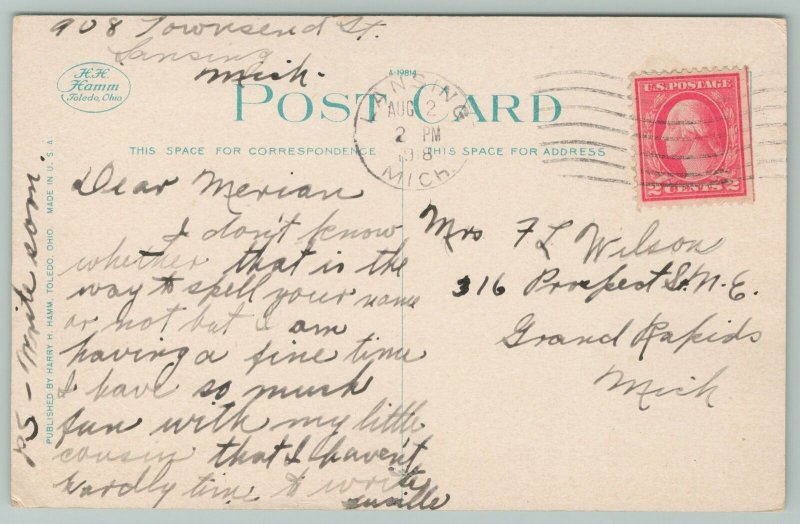 908 Townsend St.
Lansing
Mich.
H.H.
Hamm
Toledo, Ohio
A-19814
POST CARD
THIS SPACE FOR CORRESPONDENCE
THIS SPACE FOR ADDRESS
LANSING
AUG 2
2 PM
1918
MICH.
U.S. POSTAGE
2 CENTS 2
Dear Merian
I don't know
whether that is the
way to spell your name
or not but I am
having a fine time
I have so much
fun with my little
cousin that I haven't
hardly time to write
PS - Write soon.
PUBLISHED BY HARRY H. HAMM, TOLEDO, OHIO MADE IN U.S.A.
Mrs F L Wilson
316 Prospect St. N.E.
Grand Rapids
Mich